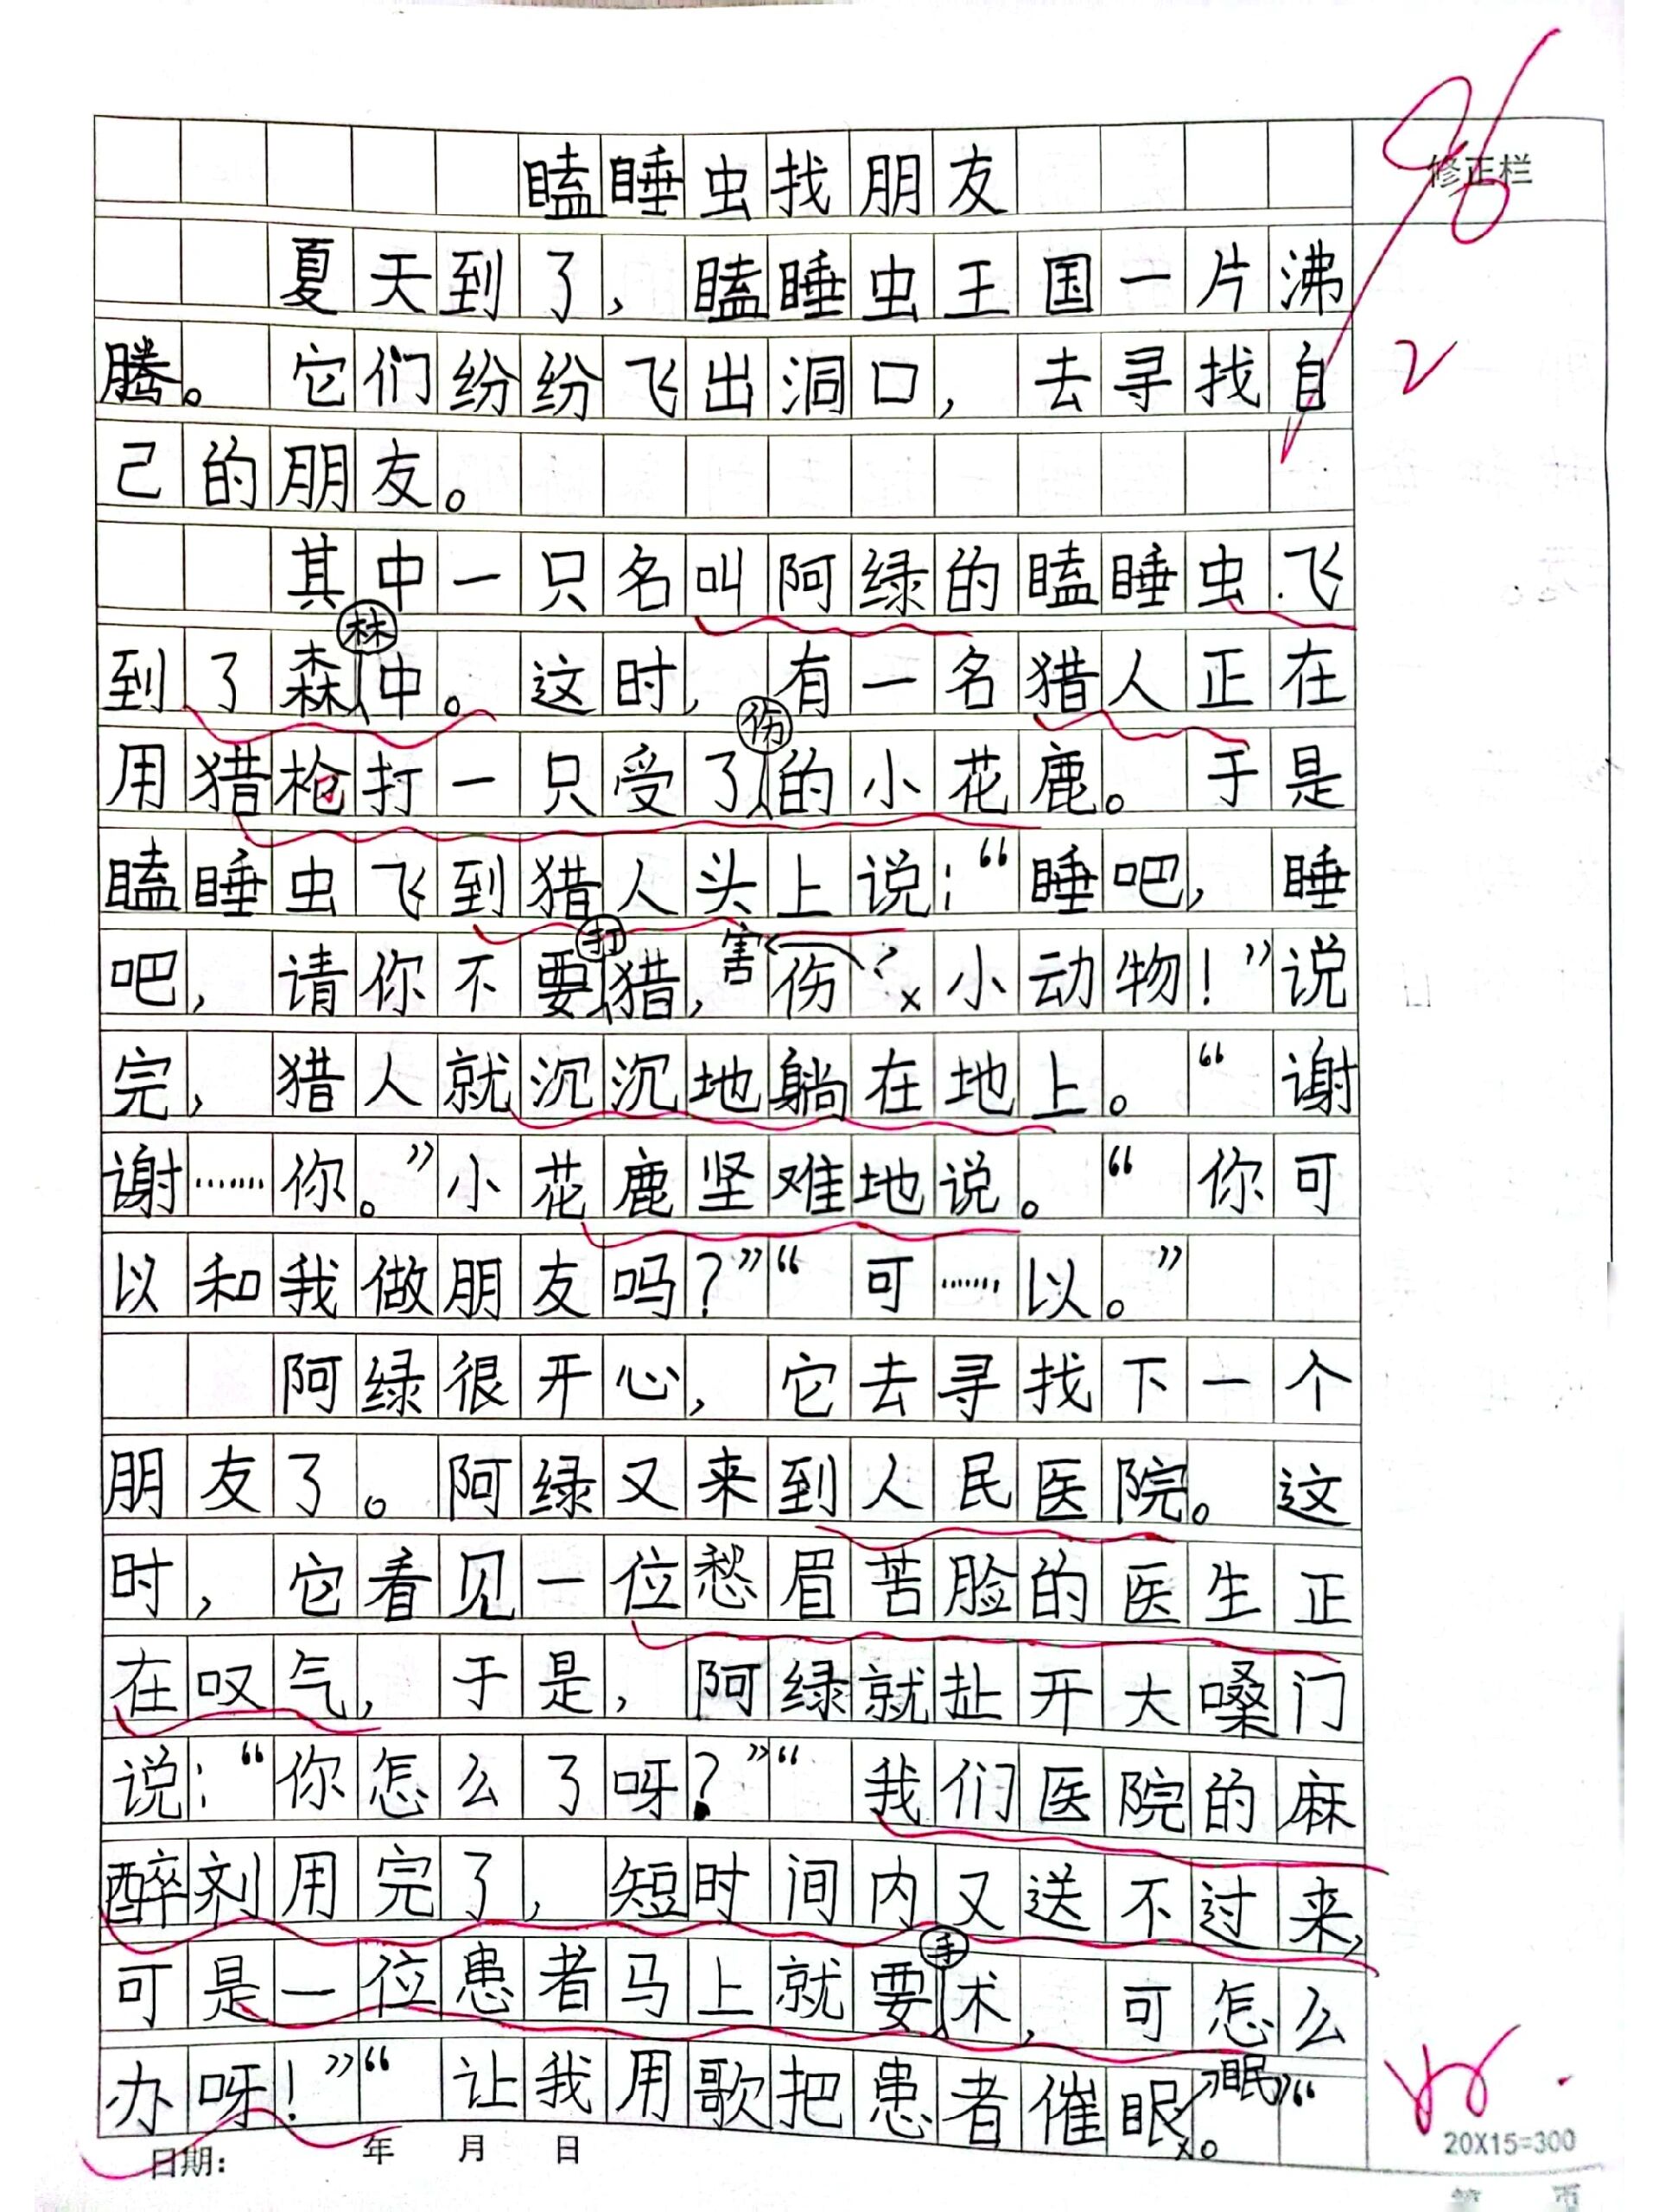 96
修正栏
瞌睡虫找朋友
夏天到了，瞌睡虫王国一片沸
腾。它们纷纷飞出洞口，去寻找自
己的朋友。
其中一只名叫阿绿的瞌睡虫飞
到了森林中。这时，有一名猎人正在
用猎枪打一只受了伤的小花鹿。于是
瞌睡虫飞到猎人头上说：“睡吧，睡
吧，请你不要打猎，伤害小动物！”说
完，猎人就沉沉地躺在地上。“谢
谢……你。”小花鹿坚难地说。“你可
以和我做朋友吗？”“可……以。”
阿绿很开心，它去寻找下一个
朋友了。阿绿又来到人民医院。这
时，它看见一位愁眉苦脸的医生正
在叹气，于是，阿绿就扯开大嗓门
说：“你怎么了呀？”“我们医院的麻
醉剂用完了，短时间内又送不过来，
可是一位患者马上就要手术，可怎么
办呀！”“让我用歌把患者催眠。”“
日期：　年　月　日
20X15=300